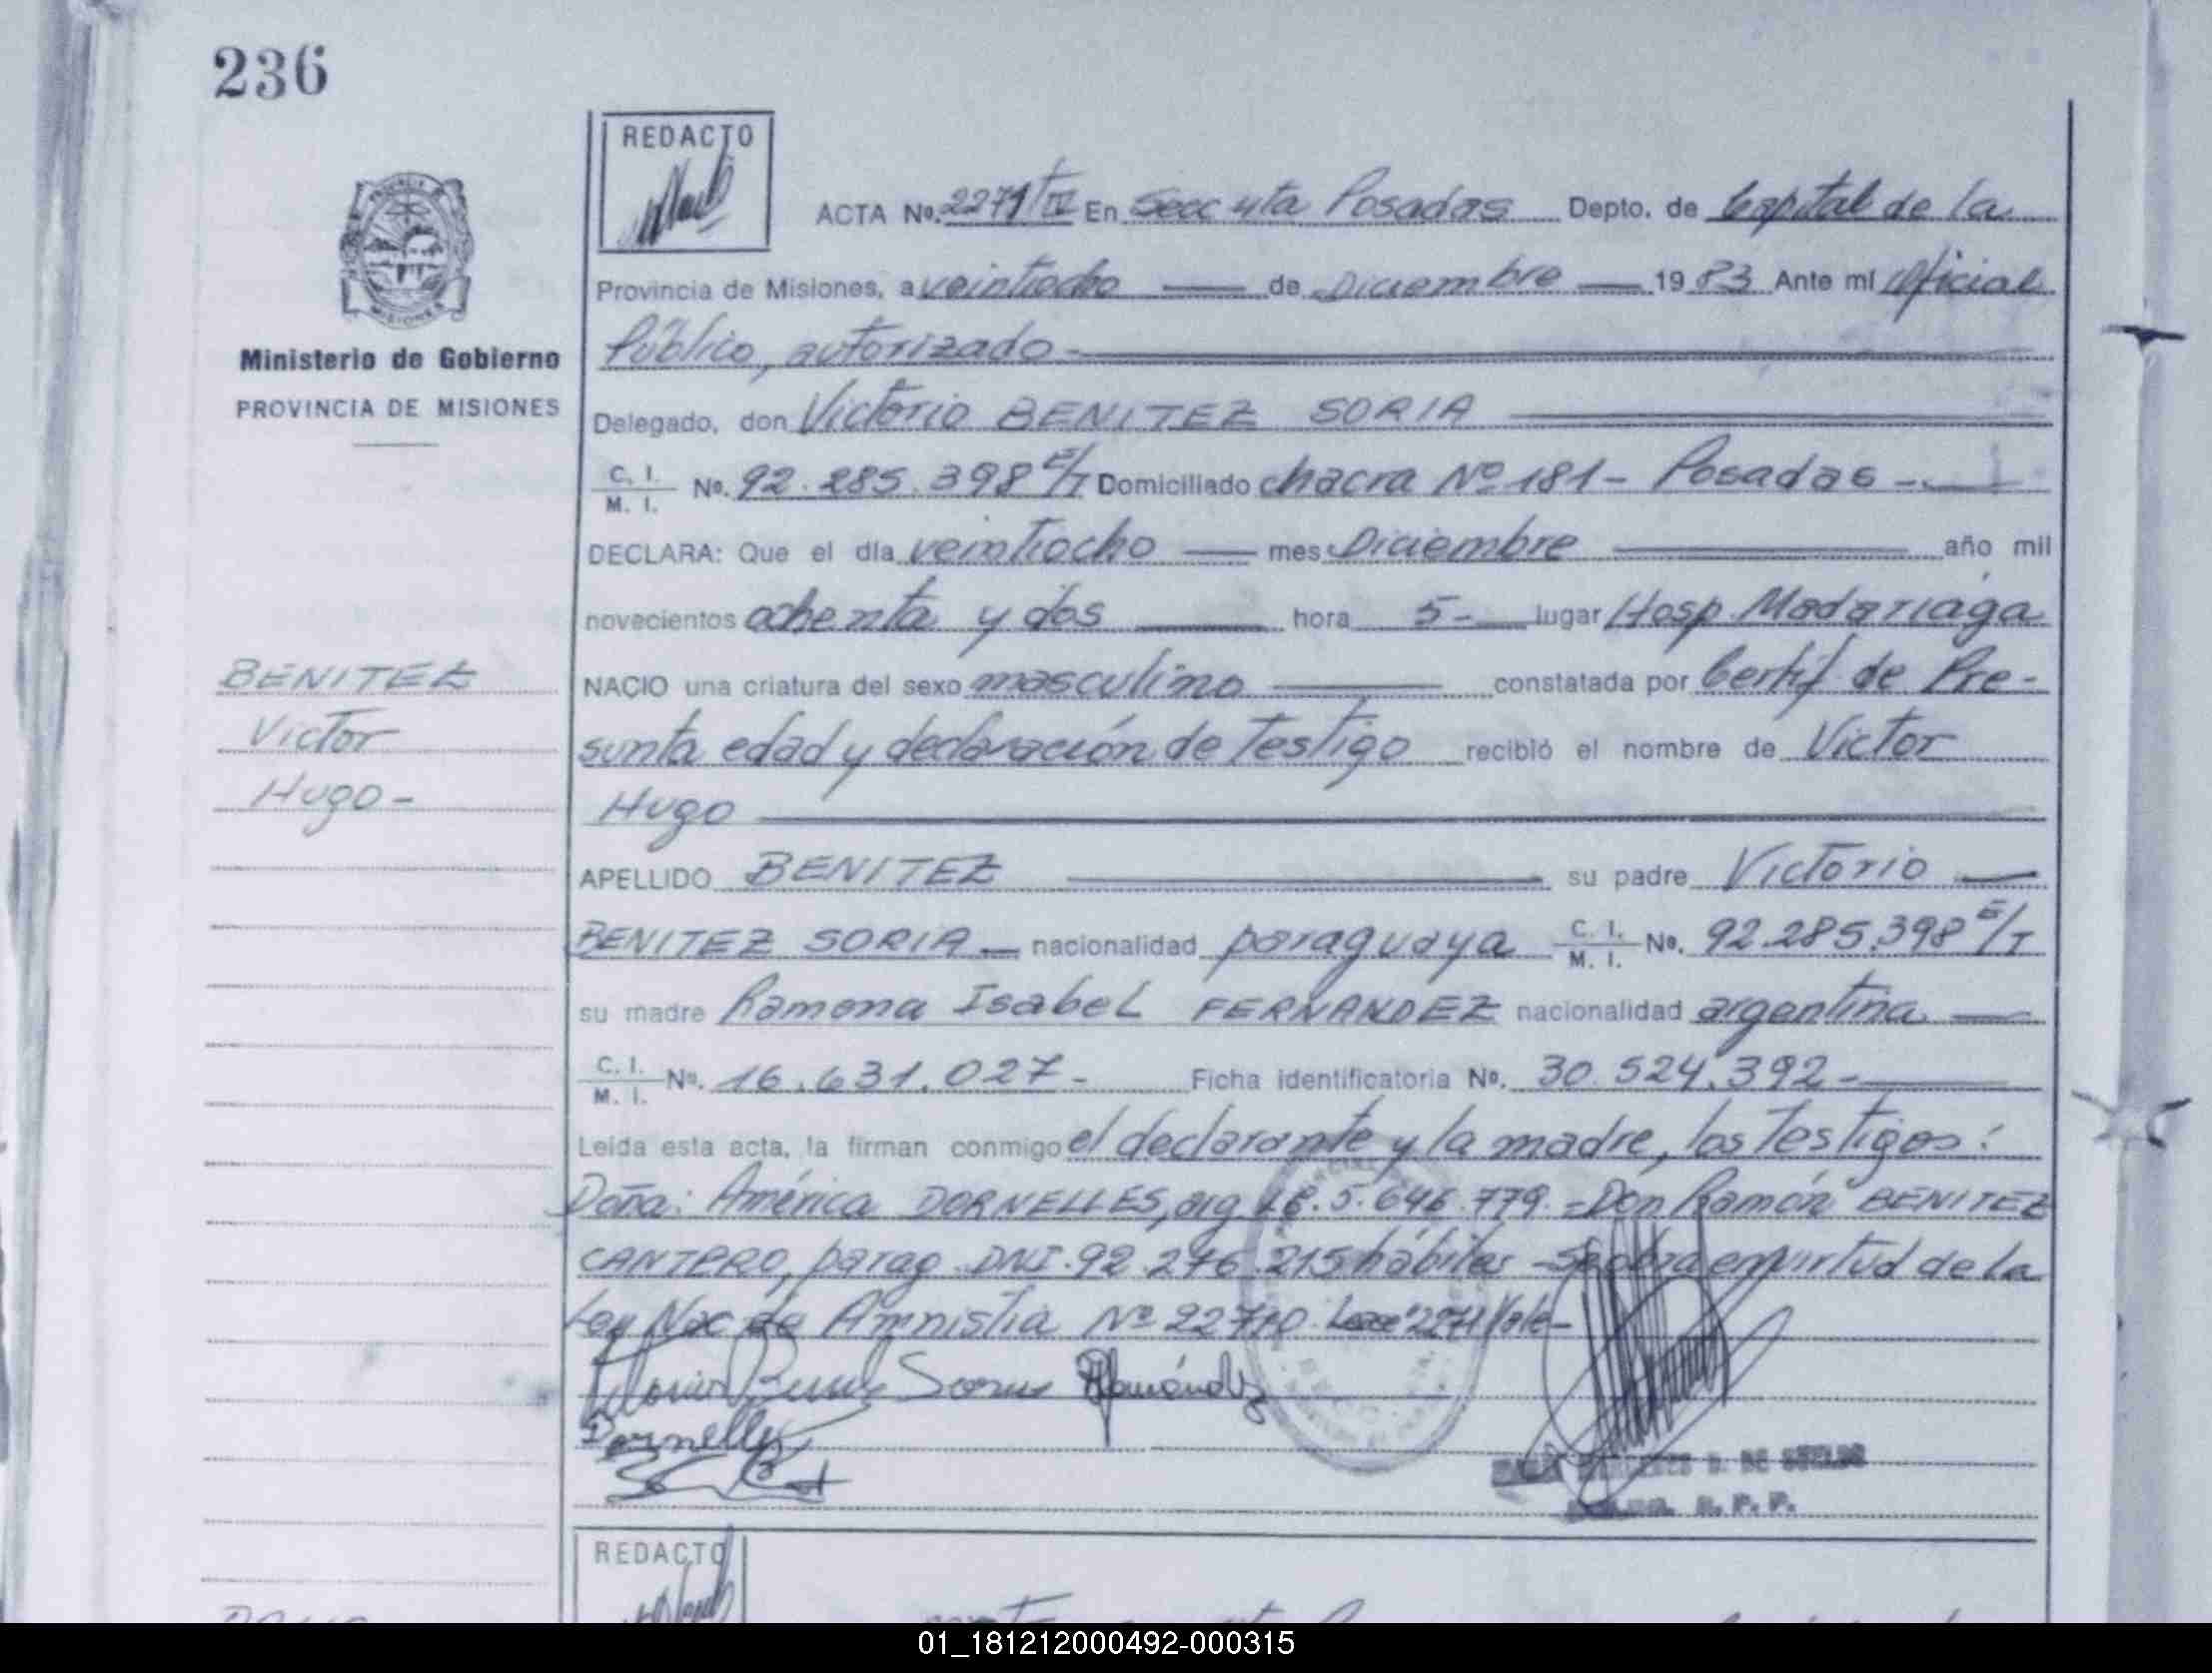 236
REDACTO
ACTA No. 2271 TIV En Secc 4ta Posadas Depto. de Capital de la
Provincia de Misiones, a veintiocho de Diciembre 1983 Ante mí Oficial
Público, autorizado
Ministerio de Gobierno
PROVINCIA DE MISIONES
Delegado, don Victorio BENITEZ SORIA
C. I. M. I. No. 92.285.398 E/T Domiciliado chacra Nº 181 - Posadas -
DECLARA: Que el día veintiocho mes Diciembre año mil
novecientos ochenta y dos hora 5- lugar Hosp. Madariaga
BENITEZ
Victor
Hugo -
NACIO una criatura del sexo masculino constatada por Certif de Pre-
sunta edad y declaración de testigo recibió el nombre de Victor
Hugo
APELLIDO BENITEZ su padre Victorio
BENITEZ SORIA nacionalidad paraguaya C. I. M. I. No. 92.285.398 E/T
su madre Ramona Isabel FERNANDEZ nacionalidad argentina
C. I. M. I. No. 16.631.027- Ficha identificatoria No. 30.524.392-
Leída esta acta, la firman conmigo el declarante y la madre, los testigos:
Doña: América DORNELLES, arg. 5.646.779.- Don Ramón BENITEZ
CANTERO, parag. DNI. 92.276.215 hábiles - Se labra en virtud de la
Ley Nac de Amnistía Nº 22710 2271 Vale-
Victorio Benitez Soria RFernández
Dornelles
D. DE
R. P. P.
REDACTO
01_181212000492-000315